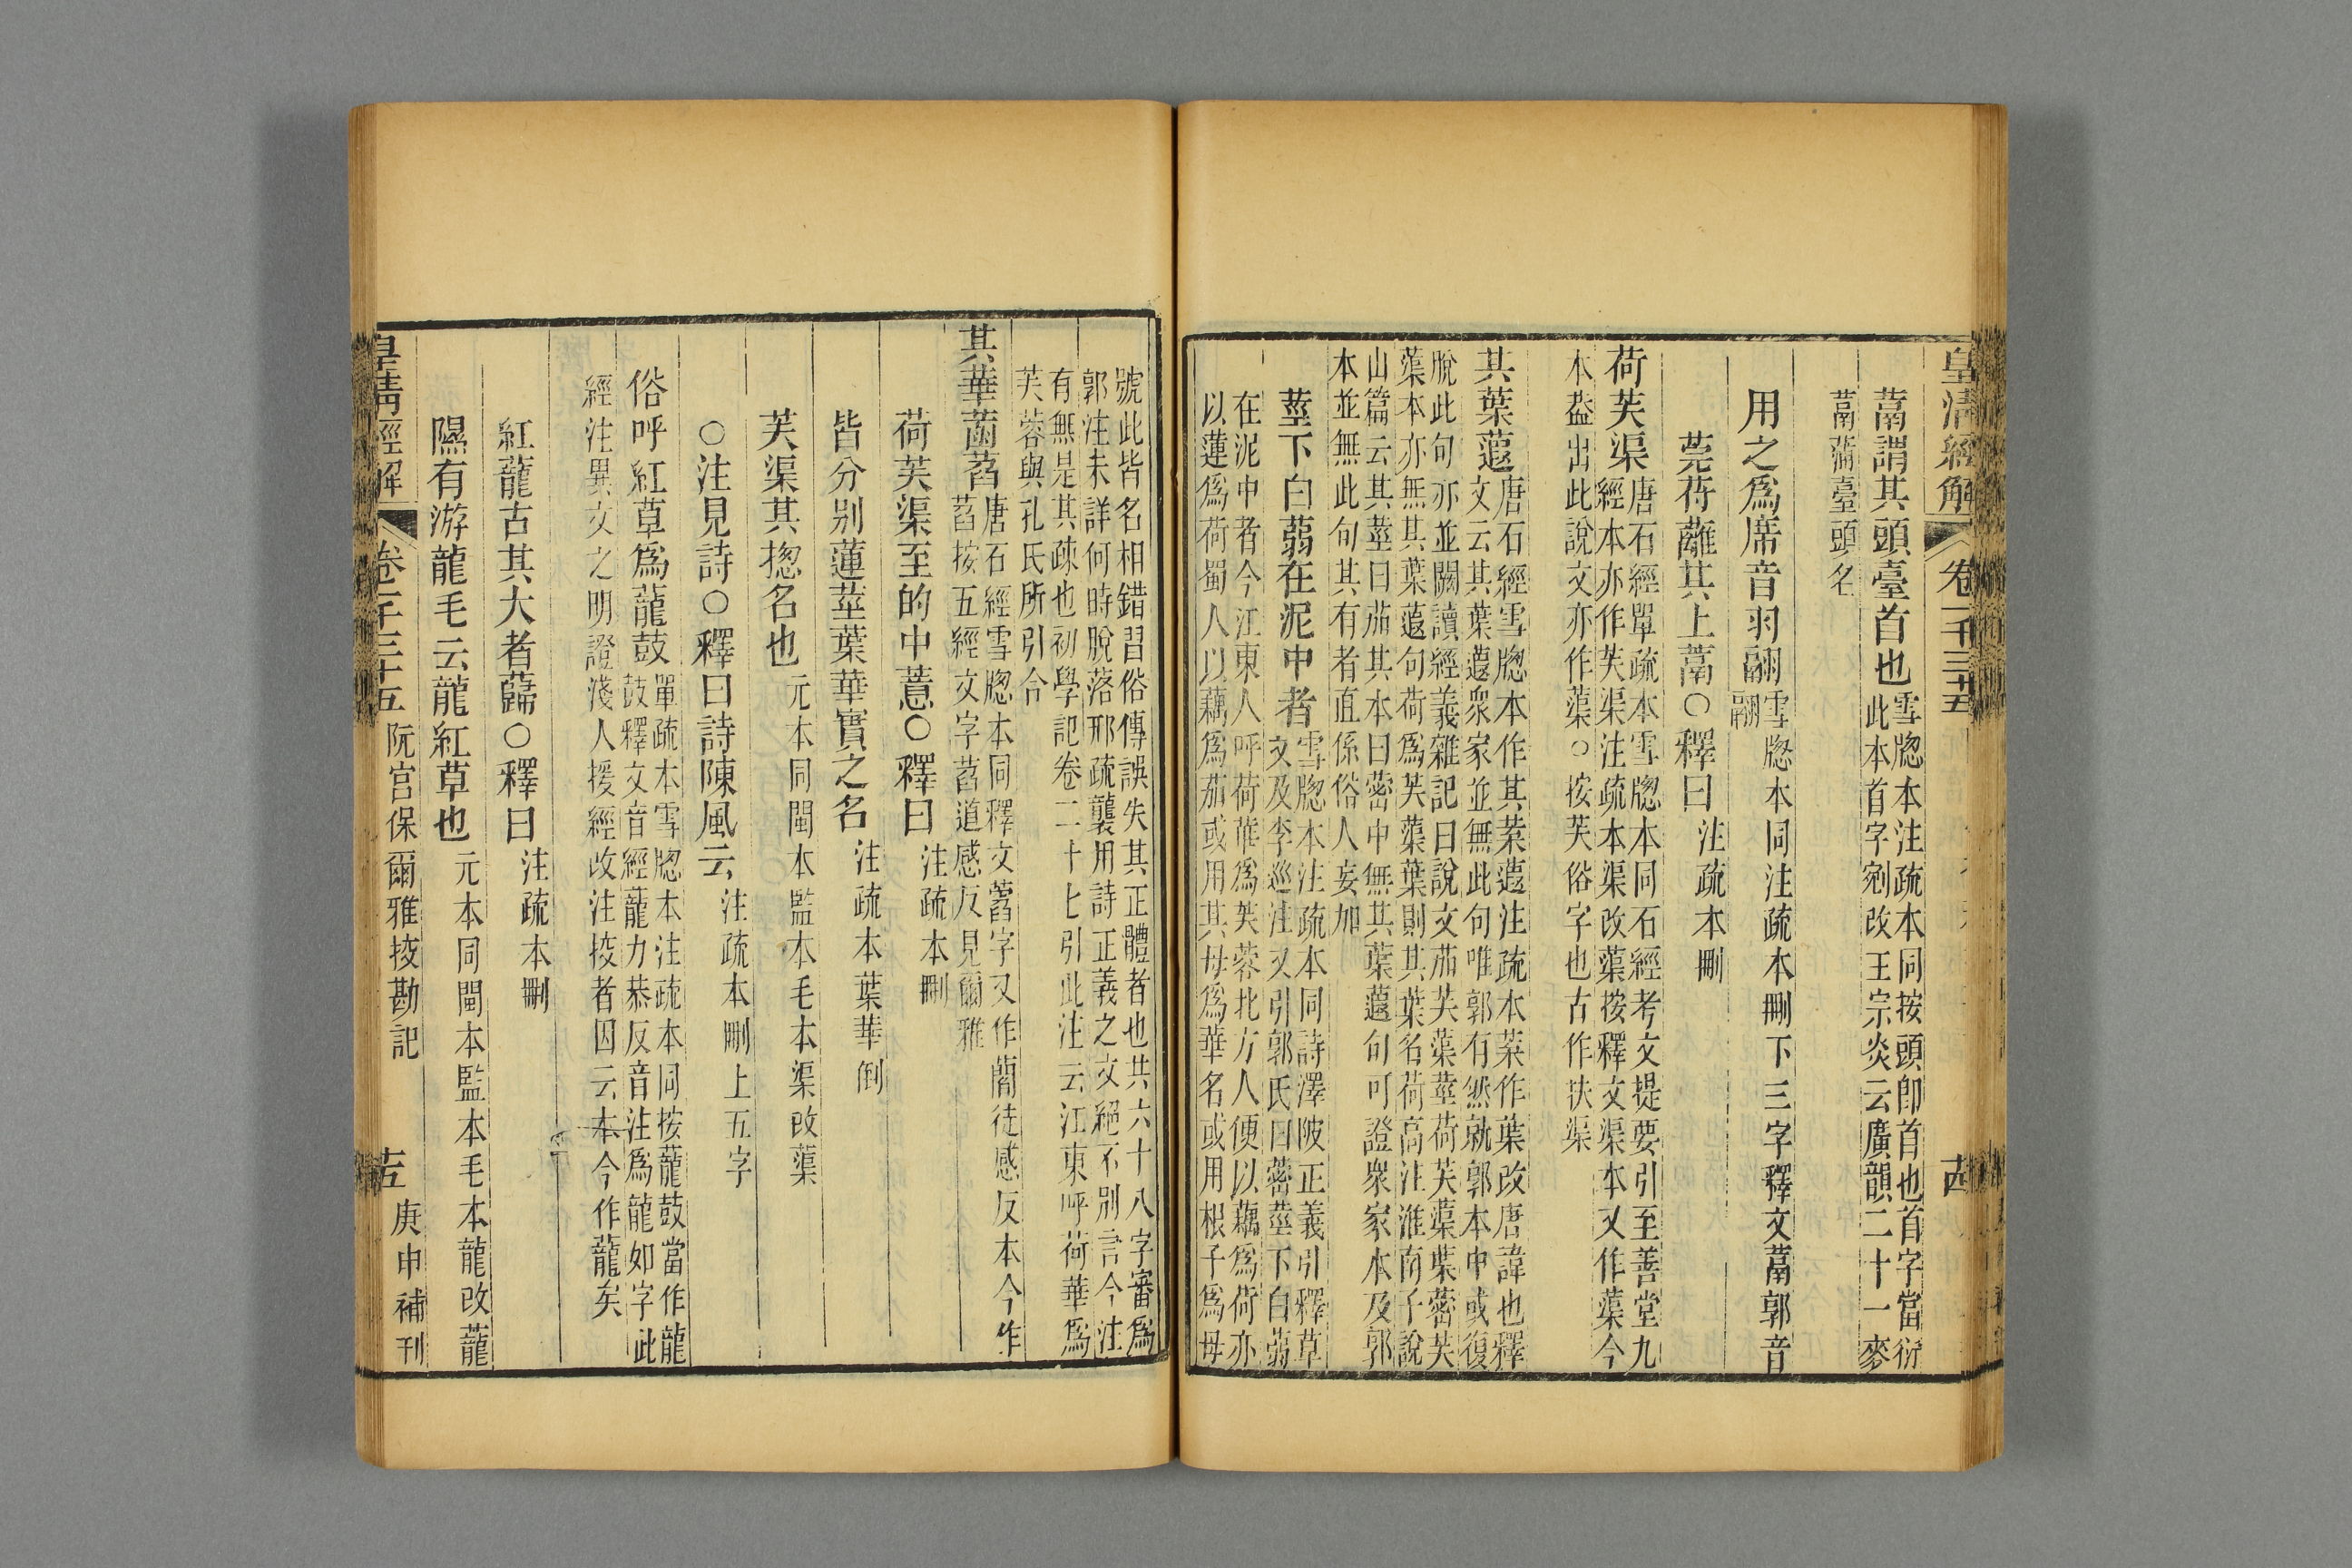 皇清經解 卷一千三十五 十四
蒚謂其頭臺首也雪牎本注疏本同按頭卽首也首字當衍
此本首字剜改王宗炎云廣韻二十一麥
蒚蒲臺頭名
用之爲席音羽翮雪牎本同注疏本刪下三字釋文蒚郭音
翮
莞苻蘺其上蒚○釋曰注疏本刪
荷芙渠唐石經單疏本雪牎本同石經考文提要引至善堂九
經本亦作芙渠注疏本渠改蕖按釋文渠本又作蕖今
本葢出此說文亦作蕖○按芙俗字也古作扶渠
其葉蕸唐石經雪牎本作其䒳蕸注疏本䒳作葉改唐諱也釋
文云其葉蕸衆家並無此句唯郭有然就郭本中或復
脫此句亦並闕讀經義雜記曰說文茄芙蕖莖荷芙蕖葉蔤芙
蕖本亦無其葉蕸句荷爲芙蕖葉則其葉名荷高注淮南子說
山篇云其莖曰茄其本曰蔤中無其葉蕸句可證衆家本及郭
本並無此句其有者直係俗人妄加
莖下白蒻在泥中者雪牎本注疏本同詩澤陂正義引釋草
文及李巡注又引郭氏曰蔤莖下白蒻
在泥中者今江東人呼荷華爲芙蓉北方人便以藕爲荷亦
以蓮爲荷蜀人以藕爲茄或用其母爲華名或用根子爲母
號此皆名相錯習俗傳誤失其正體者也共六十八字審爲
郭注未詳何時脫落邢疏襲用詩正義之文絕不別言今注
有無是其疎也初學記卷二十七引此注云江東呼荷華爲
芙蓉與孔氏所引合
其華菡萏唐石經雪牎本同釋文藺字又作䕭徒感反本今作
萏按五經文字萏道感反見爾雅
荷芙渠至的中薏○釋曰注疏本刪
皆分別蓮莖葉華實之名注疏本葉華倒
芙渠其揔名也元本同閩本監本毛本渠改蕖
○注見詩○釋曰詩陳風云注疏本刪上五字
俗呼紅草爲蘢鼓單疏本雪牎本注疏本同按蘢鼓當作龍
鼓釋文音經蘢力恭反音注爲龍如字此
經注異文之明證淺人援經改注挍者因云本今作龍矣
紅蘢古其大者蘬○釋曰注疏本刪
隰有游龍毛云龍紅草也元本同閩本監本毛本龍改蘢
皇清經解 卷一千三十五 阮宮保爾雅挍勘記 十五 庚申補刊